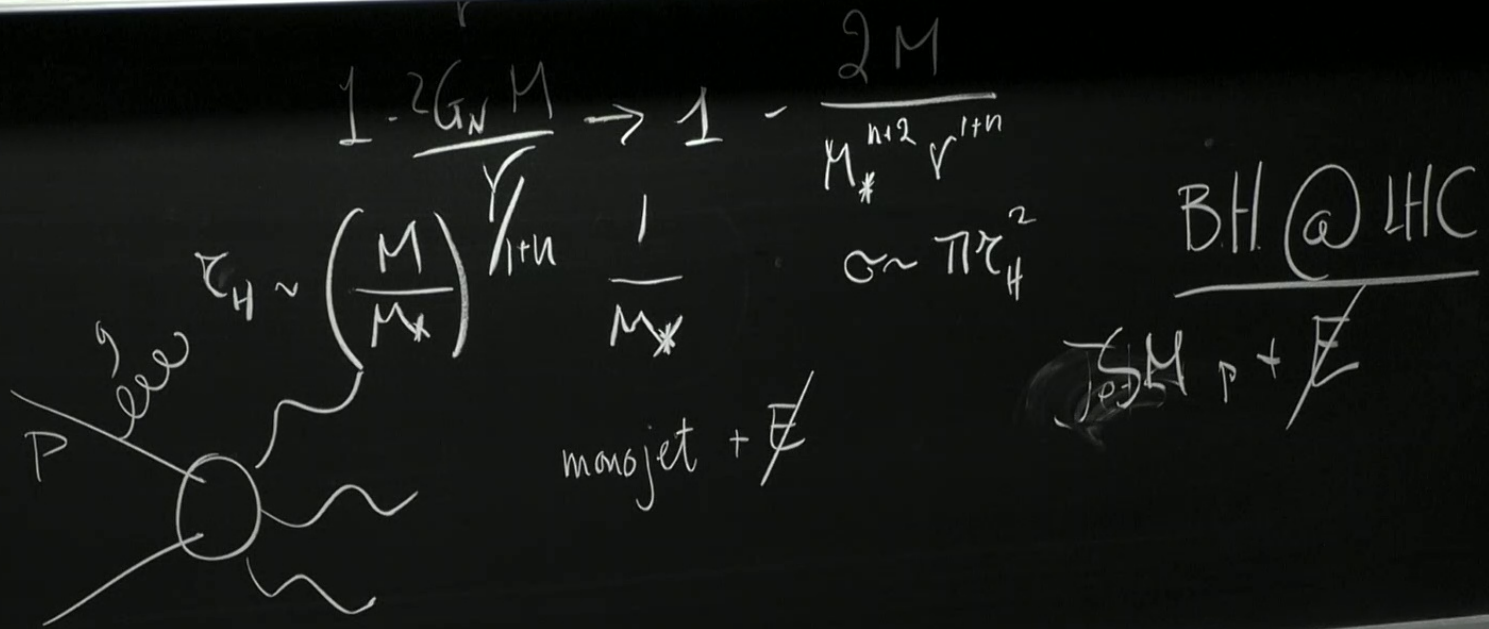 1 - 2G_N M / r → 1 - 2M / M_*^{n+2} r^{1+n}
r_H ~ (M / M_*)^{1/1+n} 1 / M_*
σ ~ π r_H^2
B.H. @ LHC
SM p + E̸
g
P
monojet + E̸